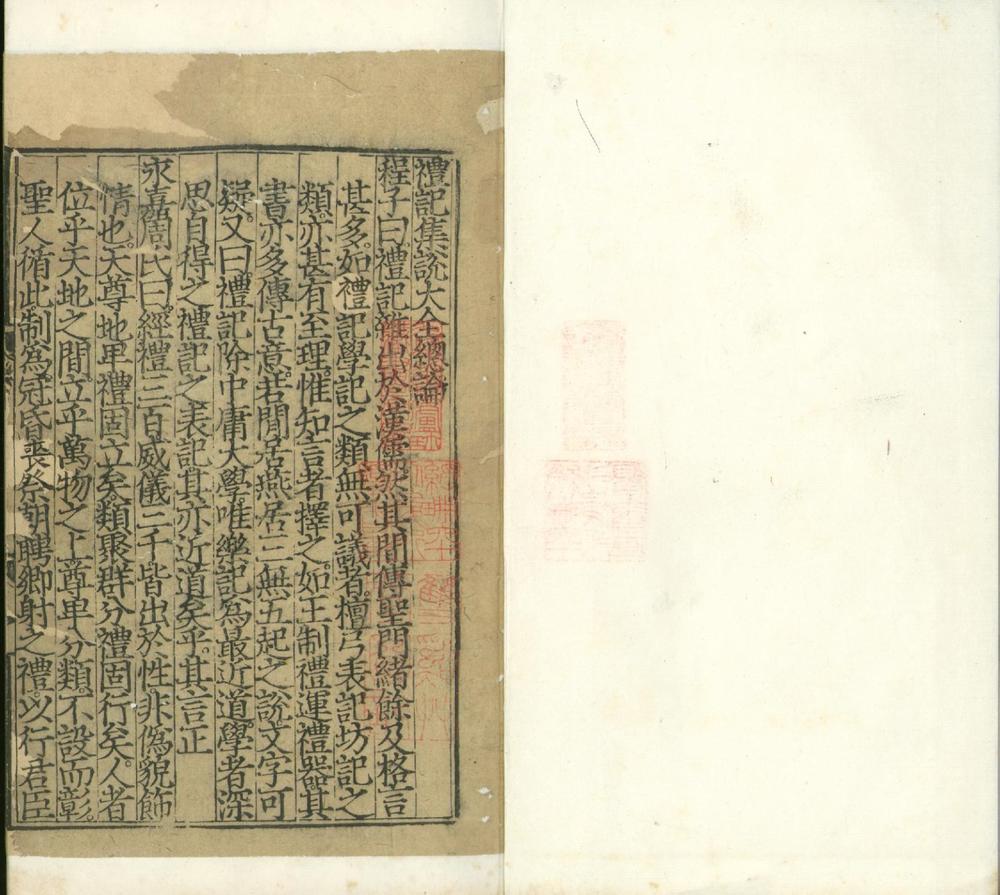 禮記集說大全總論
程子曰禮記雜出於漢儒然其間傳聖門緒餘及格言
甚多如禮記學記之類無可議者檀弓表記坊記之
類亦甚有至理惟知言者擇之如王制禮運禮器其
書亦多傳古意若閒居燕居三無五起之說文字可
疑又曰禮記除中庸大學唯樂記爲最近道學者深
思自得之禮記之表記其亦近道矣乎其言正
永嘉周氏曰經禮三百威儀三千皆出於性非僞貌飾
情也天尊地卑禮固立矣類聚群分禮固行矣人者
位乎天地之間立乎萬物之上尊卑分類不設而彰
聖人循此制爲冠昏喪祭朝聘鄉射之禮以行君臣